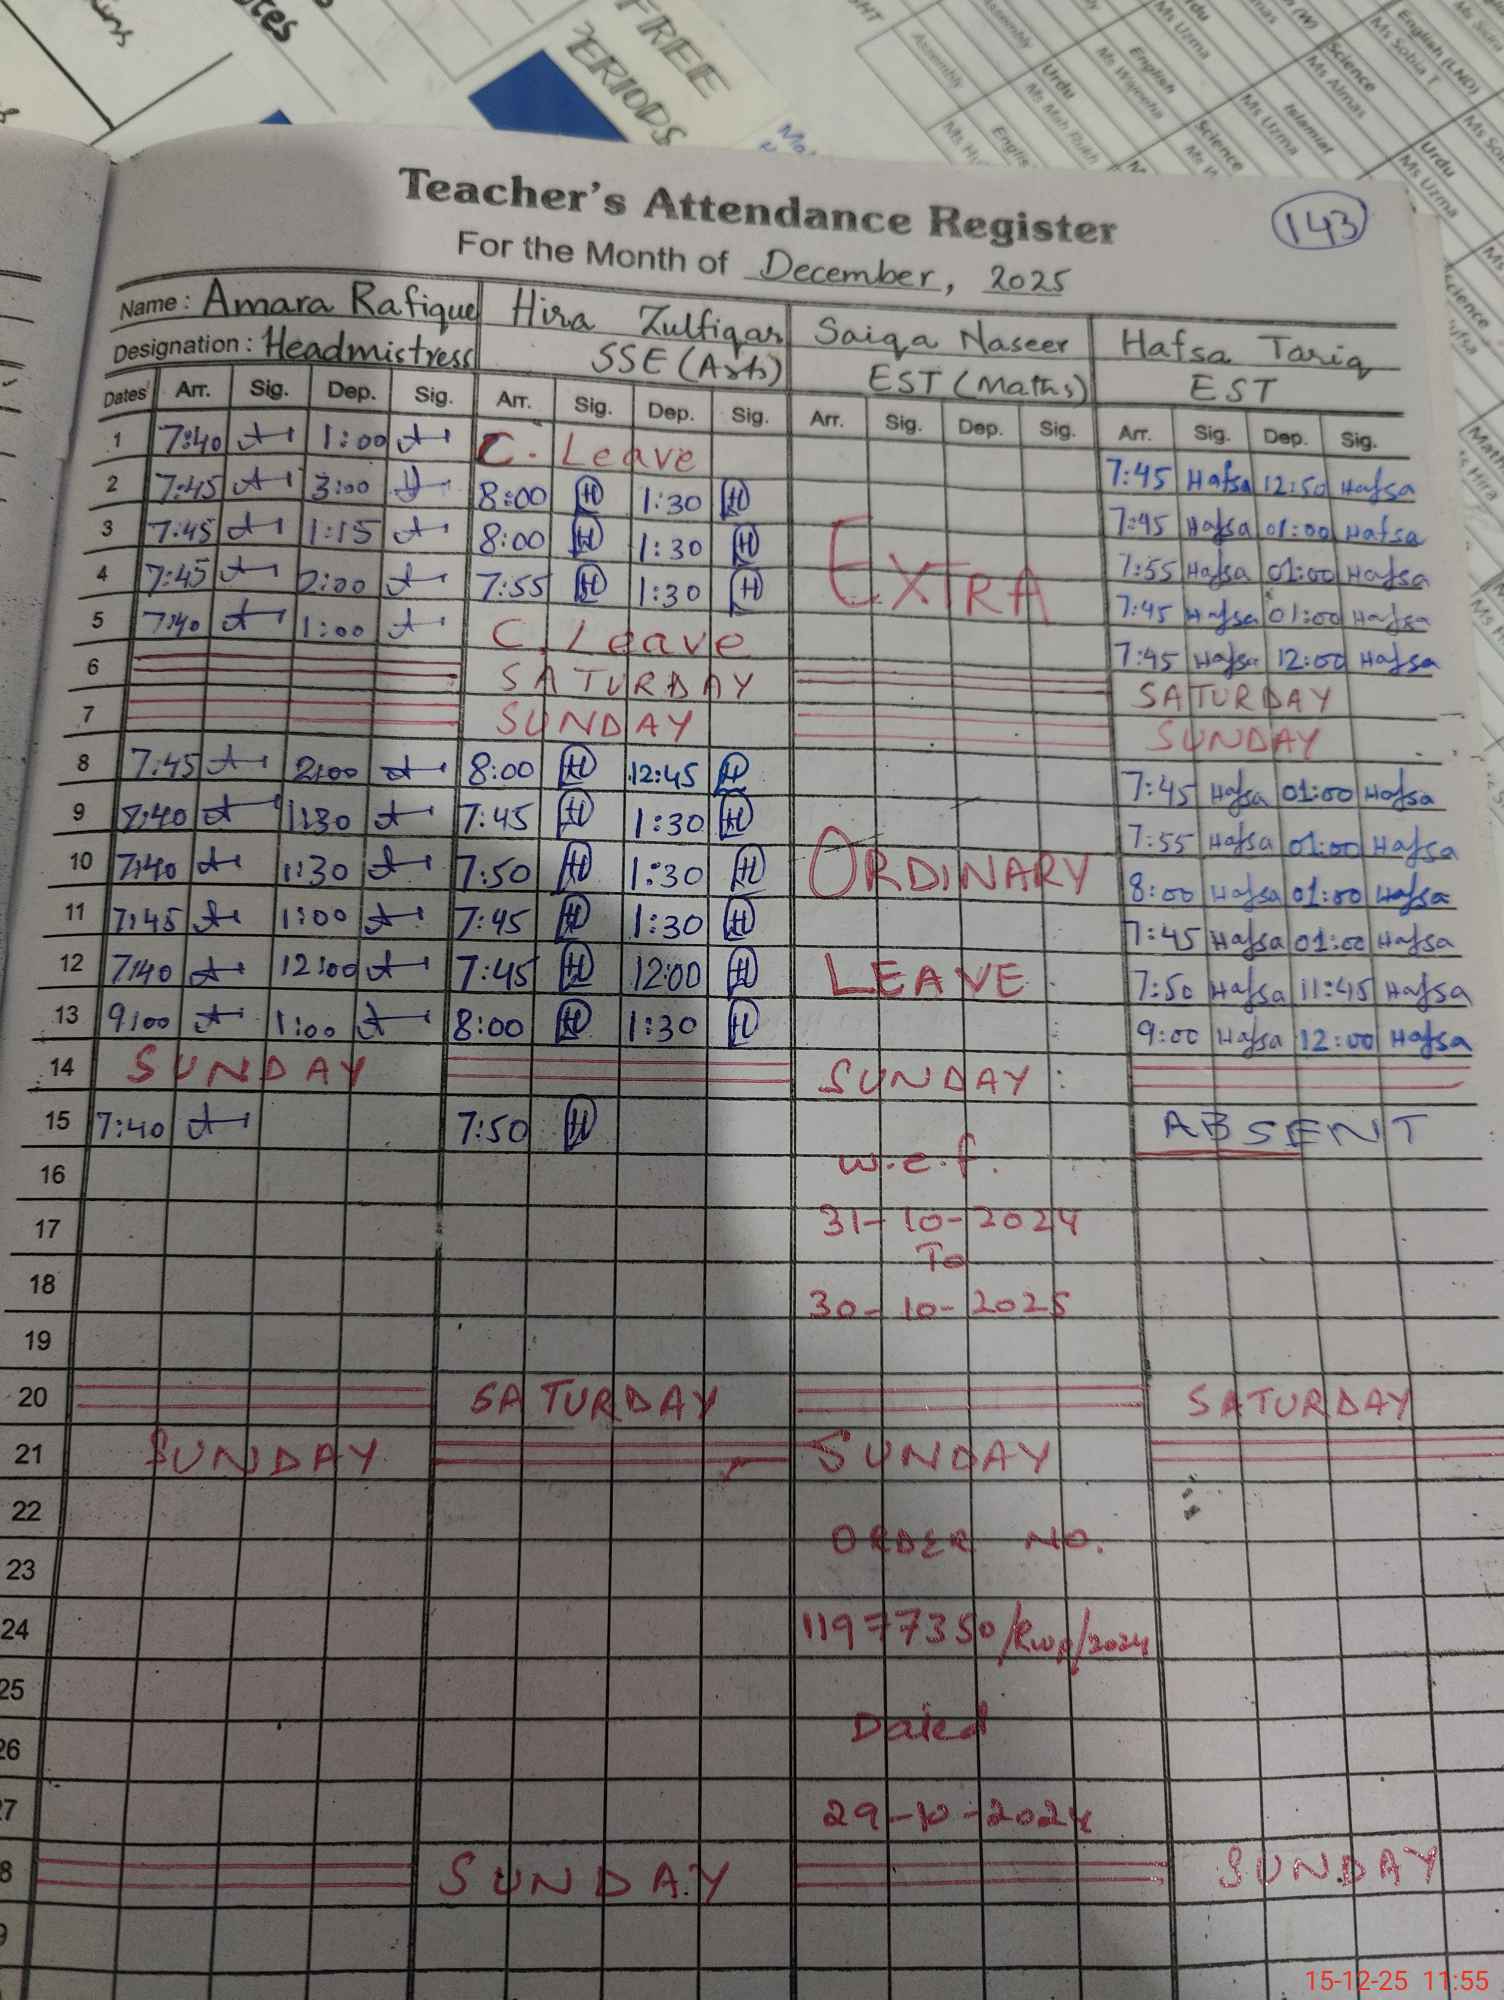 FREE
PERIODS
Teacher's Attendance Register
143
For the Month of December, 2025
Name: Amara Rafique Hira Zulfiqar Saiqa Naseer Hafsa Tariq
Designation: Headmistress SSE (Arts) EST (Maths) EST
Dates Arr. Sig. Dep. Sig. Arr. Sig. Dep. Sig. Arr. Sig. Dep. Sig. Arr. Sig. Dep. Sig.
1 7:40 1:00 C. Leave 7:45 Hafsa 12:50 Hafsa
2 7:45 3:00 8:00 H 1:30 H 7:45 Hafsa 01:00 Hafsa
3 7:45 1:15 8:00 H 1:30 H 7:55 Hafsa 01:00 Hafsa
4 7:45 2:00 7:55 H 1:30 H EXTRA 7:45 Hafsa 01:00 Hafsa
5 7:40 1:00 C. Leave 7:45 Hafsa 12:00 Hafsa
6 SATURDAY SATURDAY
7 SUNDAY SUNDAY
8 7:45 2:00 8:00 H 12:45 H 7:45 Hafsa 01:00 Hafsa
9 7:40 1:30 7:45 H 1:30 H 7:55 Hafsa 01:00 Hafsa
10 7:40 1:30 7:50 H 1:30 H ORDINARY 8:00 Hafsa 01:00 Hafsa
11 7:45 1:00 7:45 H 1:30 H 7:45 Hafsa 01:00 Hafsa
12 7:40 12:00 7:45 H 12:00 H LEAVE 7:50 Hafsa 11:45 Hafsa
13 9:00 1:00 8:00 H 1:30 H 9:00 Hafsa 12:00 Hafsa
14 SUNDAY SUNDAY
15 7:40 7:50 H ABSENT
16 w.e.f.
17 31-10-2024
To
18 30-10-2025
19
20 SATURDAY SATURDAY
21 SUNDAY SUNDAY
22
ORDER NO.
23
24 11977350/Rwp/2024
25
Dated
26
27 29-10-2024
8 SUNDAY SUNDAY
9
15-12-25 11:55